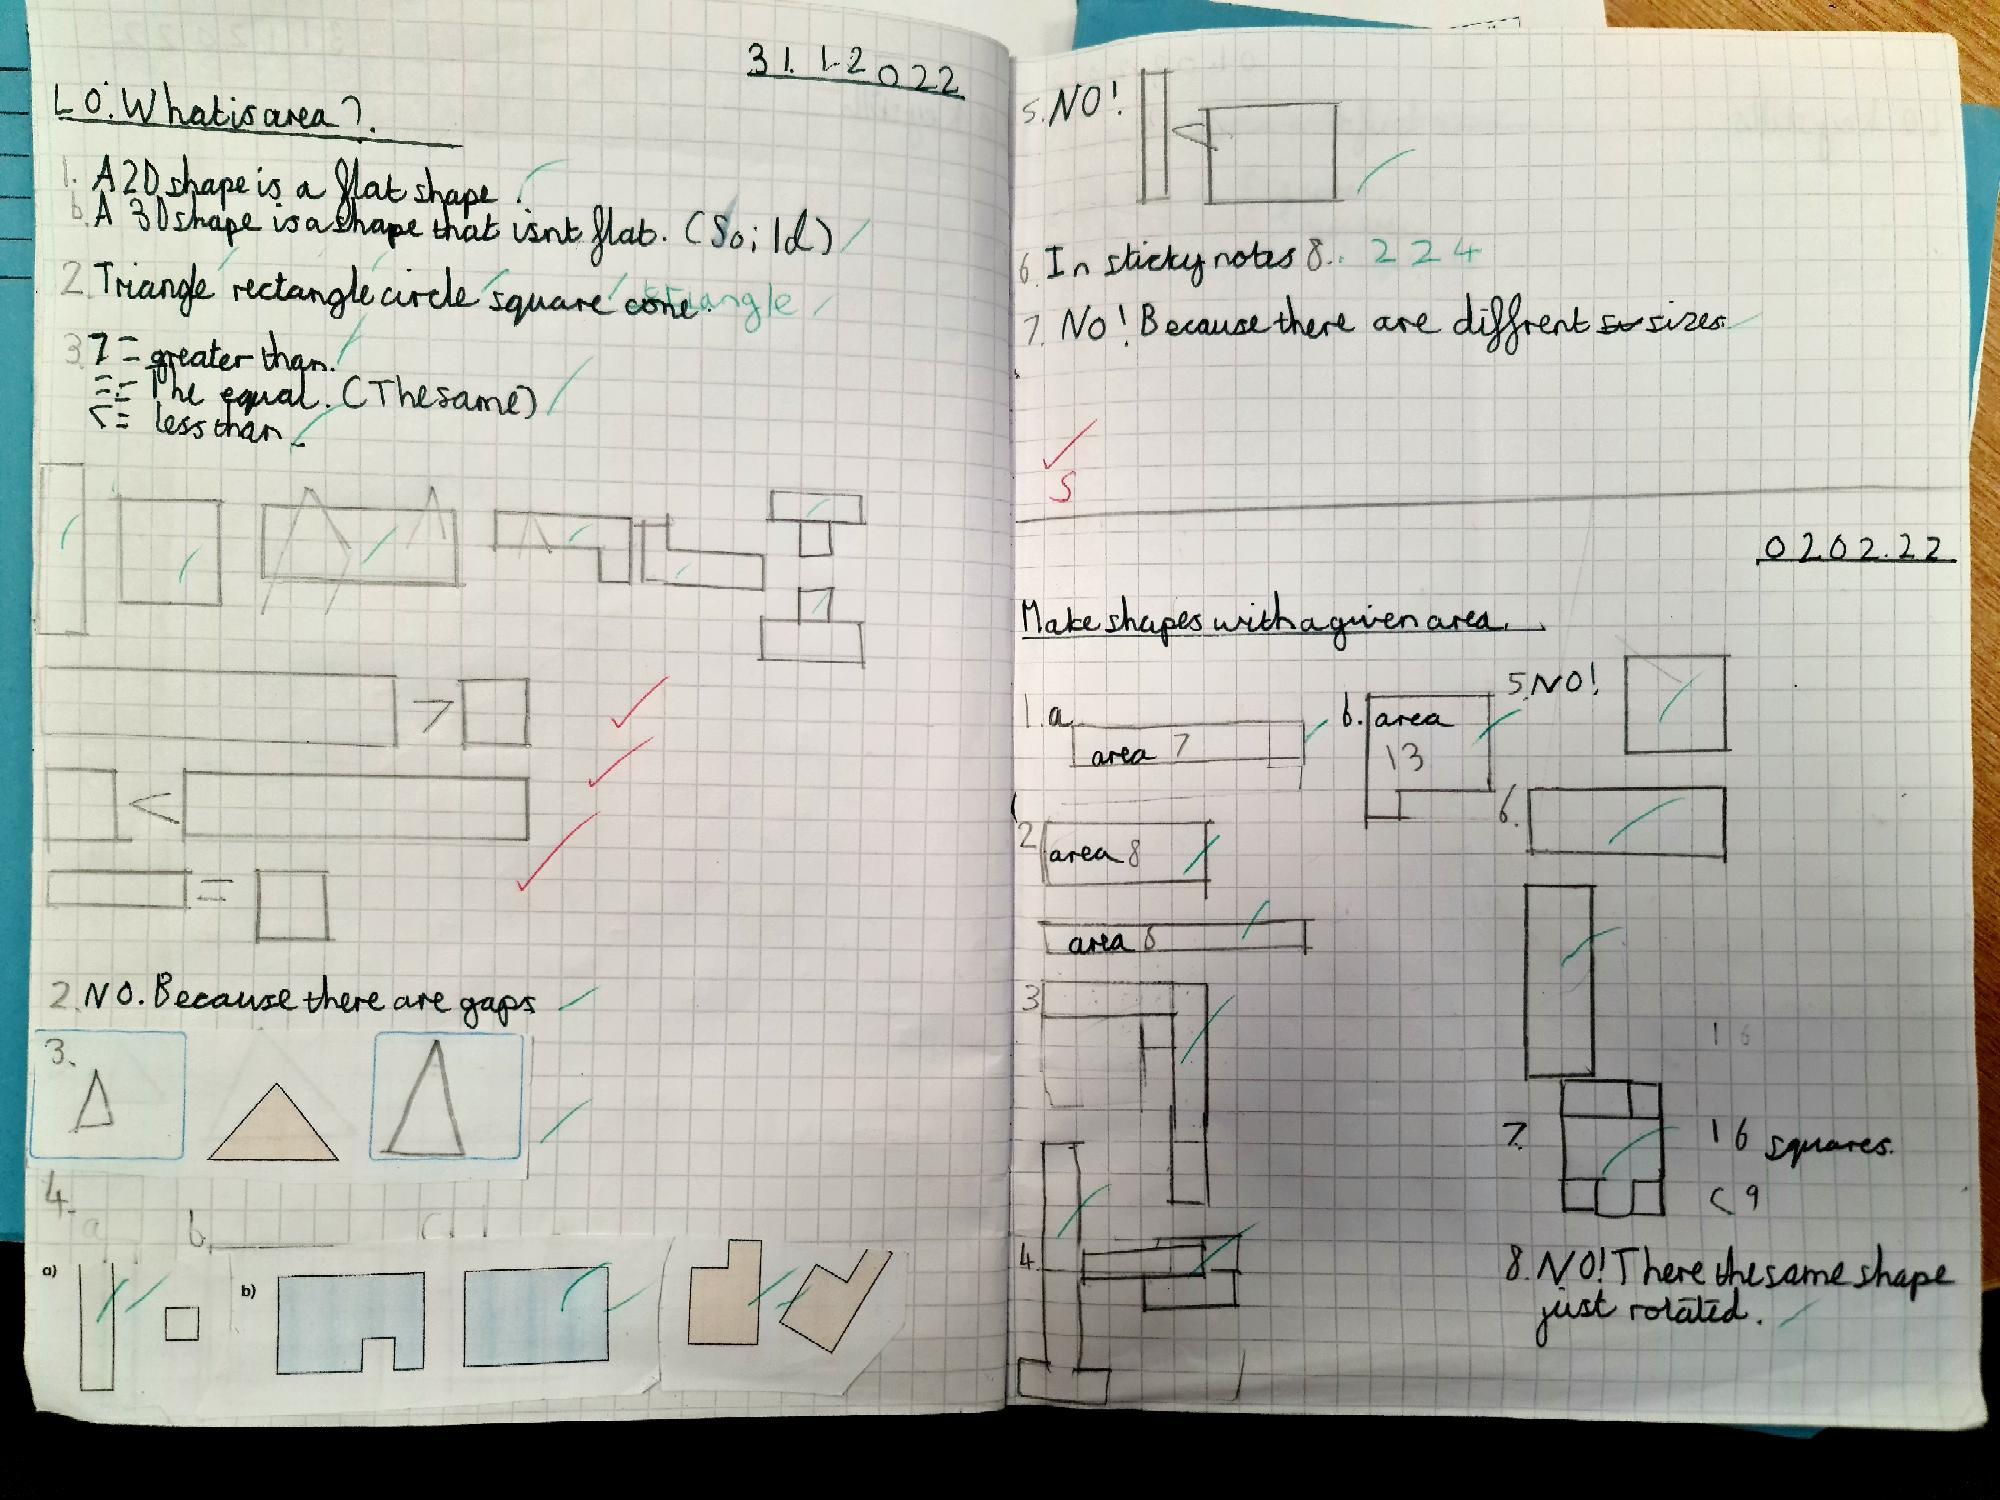 31.1.2022
LO: What is area?
1. A 2D shape is a flat shape
b. A 3D shape is a shape that isnt flat. (Soild)
2. Triangle rectangle circle square cone.
3. > = greater than.
= = The equal. (The same)
< = less than.
>
<
=
2. NO. Because there are gaps
3.
4.
a b c
a) b)
5. NO! <
6. In sticky notes 8.. 2 2 4
7. NO! Because there are diffrent sizes
S
02 02.22
Make shapes with a given area.
1. a area 7
b. area
13
2 area 8
area 8
3
4.
5. NO!
6.
16
7. 16 squares.
< 9
8. NO! There the same shape
just rotated.